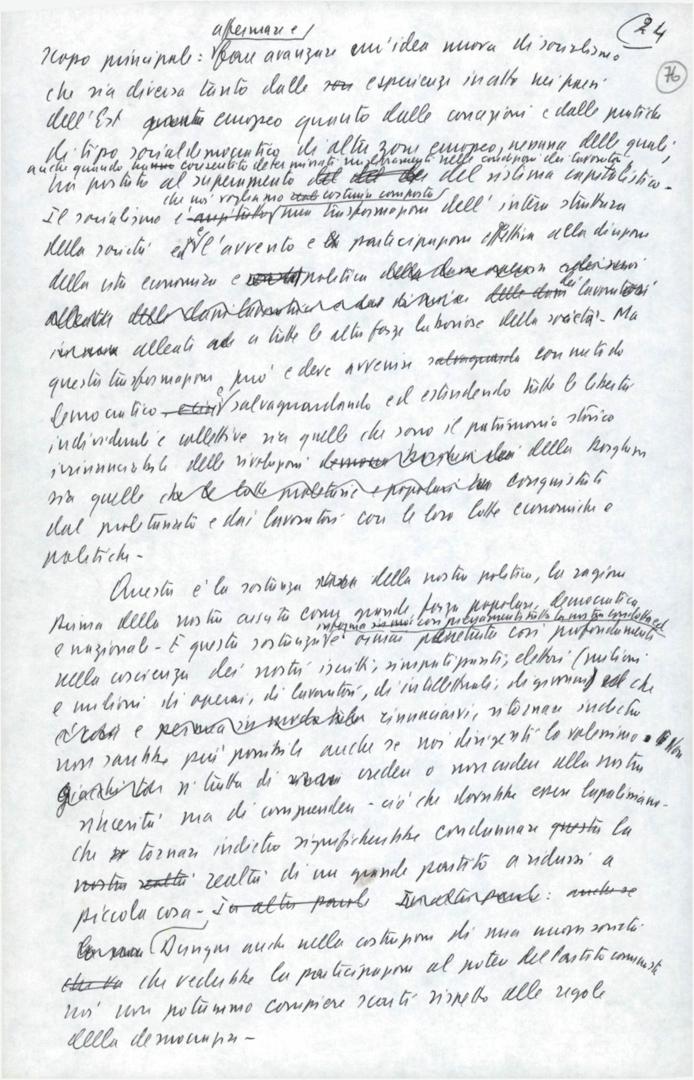 24
76
affermare e
scopo principale: fare avanzare un'idea nuova di socialismo
che sia diversa tanto dalle esperienze in atto nei paesi
dell'Est europeo quanto dalle concezioni e dalle pratiche
di tipo socialdemocratico di altre zone europee, nessuna delle quali,
anche quando hanno consentito determinati miglioramenti nelle condizioni dei lavoratori,
ha portato al superamento del sistema capitalistico -
che noi vogliamo costruire comporta
Il socialismo è una trasformazione dell'intera struttura
della società ed è l'avvento e la partecipazione effettiva alla direzione
della vita economica e politica
dei lavoratori
alleati a tutte le altre forze laboriose della società - Ma
questa trasformazione può e deve avvenire con metodo
democratico e salvaguardando ed estendendo tutte le libertà
individuali e collettive sia quelle che sono il patrimonio storico
irrinunciabile delle rivoluzioni della borghesia
sia quelle conquistate
dal proletariato e dai lavoratori con le loro lotte economiche e
politiche -
Questa è la sostanza della nostra politica, la ragione
prima della nostra crescita come grande forza popolare, democratica
informa ormai così pienamente tutta la nostra condotta ed
e nazionale - E questa sostanza è ormai penetrata così profondamente
nella coscienza dei nostri iscritti, simpatizzanti, elettori (milioni
e milioni di operai, di lavoratori, di intellettuali, di giovani) che
rinunciarvi, ritornare indietro
non sarebbe più possibile anche se noi dirigenti lo volessimo. Non
si tratta di credere o non credere alla nostra
sincerità ma di comprendere - ciò che dovrebbe essere lapalissiano -
che tornare indietro significherebbe condannare la
realtà di un grande partito a ridursi a
piccola cosa -
Dunque anche nella costruzione di una nuova società
che vedrebbe la partecipazione al potere del Partito comunista
noi non potremmo compiere scarti rispetto alle regole
della democrazia -